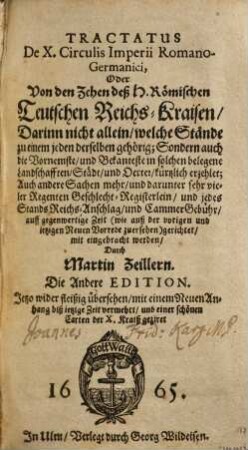 TRACTATUS
De X. Circulis Imperii Romano-
Germanici,
Oder
Von den Zehen deß H. Römischen
Teutschen Reichs-Kraisen/
Darinn nicht allein/ welche Stände
zu einem jeden derselben gehörig; Sondern auch
die Vornemste/ und Bekanteste in solchen belegene
Landschafften/ Städt/ und Oerter/ kürtzlich erzehlet;
Auch andere Sachen mehr/ und darunter sehr vie-
ler Regenten Geschlecht-Registerlein/ und jedes
Stands Reichs-Anschlag/ und CammerGebühr/
auff gegenwertige Zeit (wie auß der vorigen und
jetzigen Neuen Vorrede zuersehen) gerichtet/
mit eingebracht werden/
Durch
Martin Zeillern.
Die Andere EDITION.
Jetzo wider fleißig übersehen/ mit einem Neuen An-
hang biß jetzige Zeit vermehrt/ und einer schönen
Carten der X. Kraiß geziret
Joannes Frid:
Gott Walts
1665.
In Ulm/ Verlegt durch Georg Wildeisen.